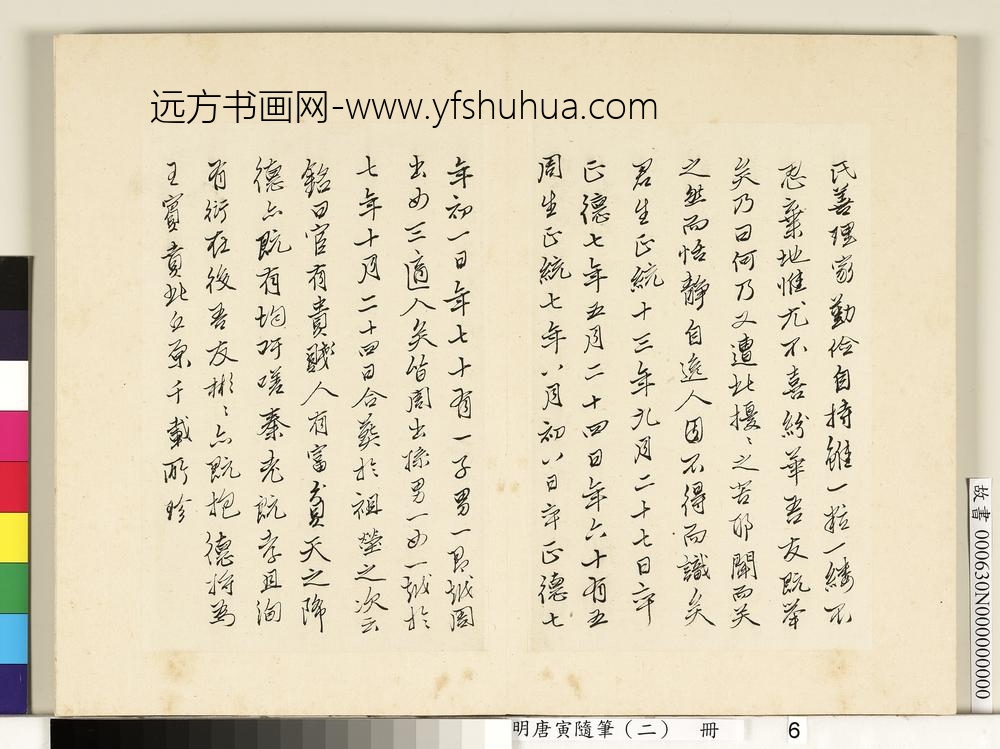 远方书画网-www.yfshuhua.com
氏善理家勤儉自持雖一粒一縷不
忍棄地惟尤不喜紛華吾友既舉
矣乃曰何乃又遭此擾〻之苦耶聞而笑
之然而恬靜自逸人固不得而識矣
君生正統十三年九月二十七日卒
正德七年五月二十四日年六十有五
周生正統七年八月初八日卒正德七
年初一日年七十有一子男一即城周
出女三適人矣皆周出孫男一女一城於
七年十月二十四日合葬於祖塋之次云
銘曰官有貴賤人有富貧天之降
德亦既有均吁嗟秦老既孝且洵
有衍在後吾友彬〻亦既抱德將為
王賓賁此丘原千載所珍
故書 000630N000000000
明唐寅隨筆(二) 冊 6